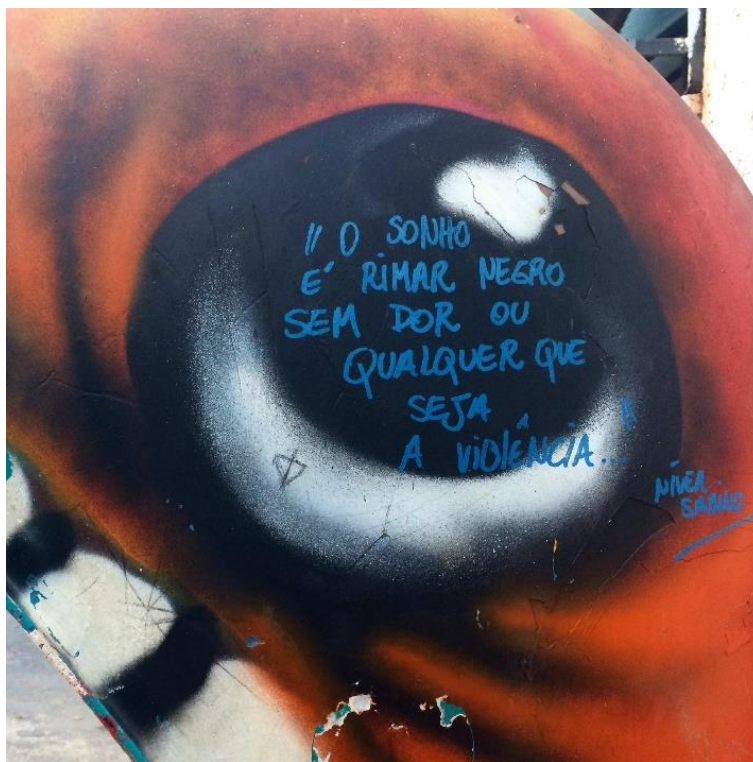 "O SONHO
É RIMAR NEGRO
SEM DOR OU
QUALQUER QUE
SEJA
A VIOLÊNCIA..."
NÍVEA
SABINO